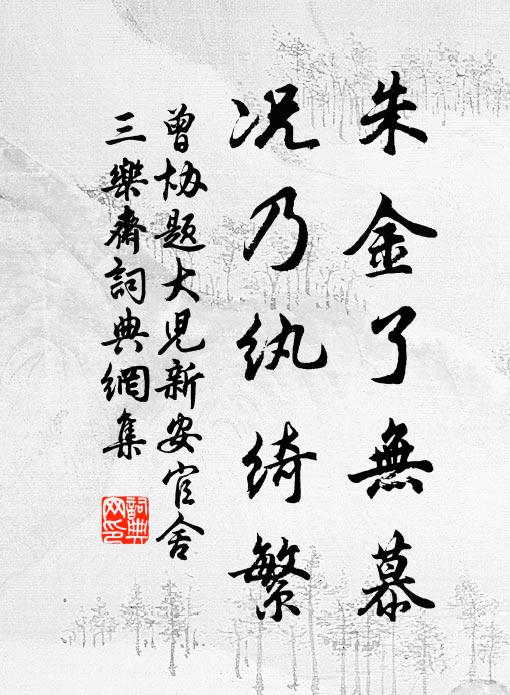 朱金了無慕
況乃紈綺繁
曾協題大兒新安官舍
三樂齋詞典網集
詞典網印